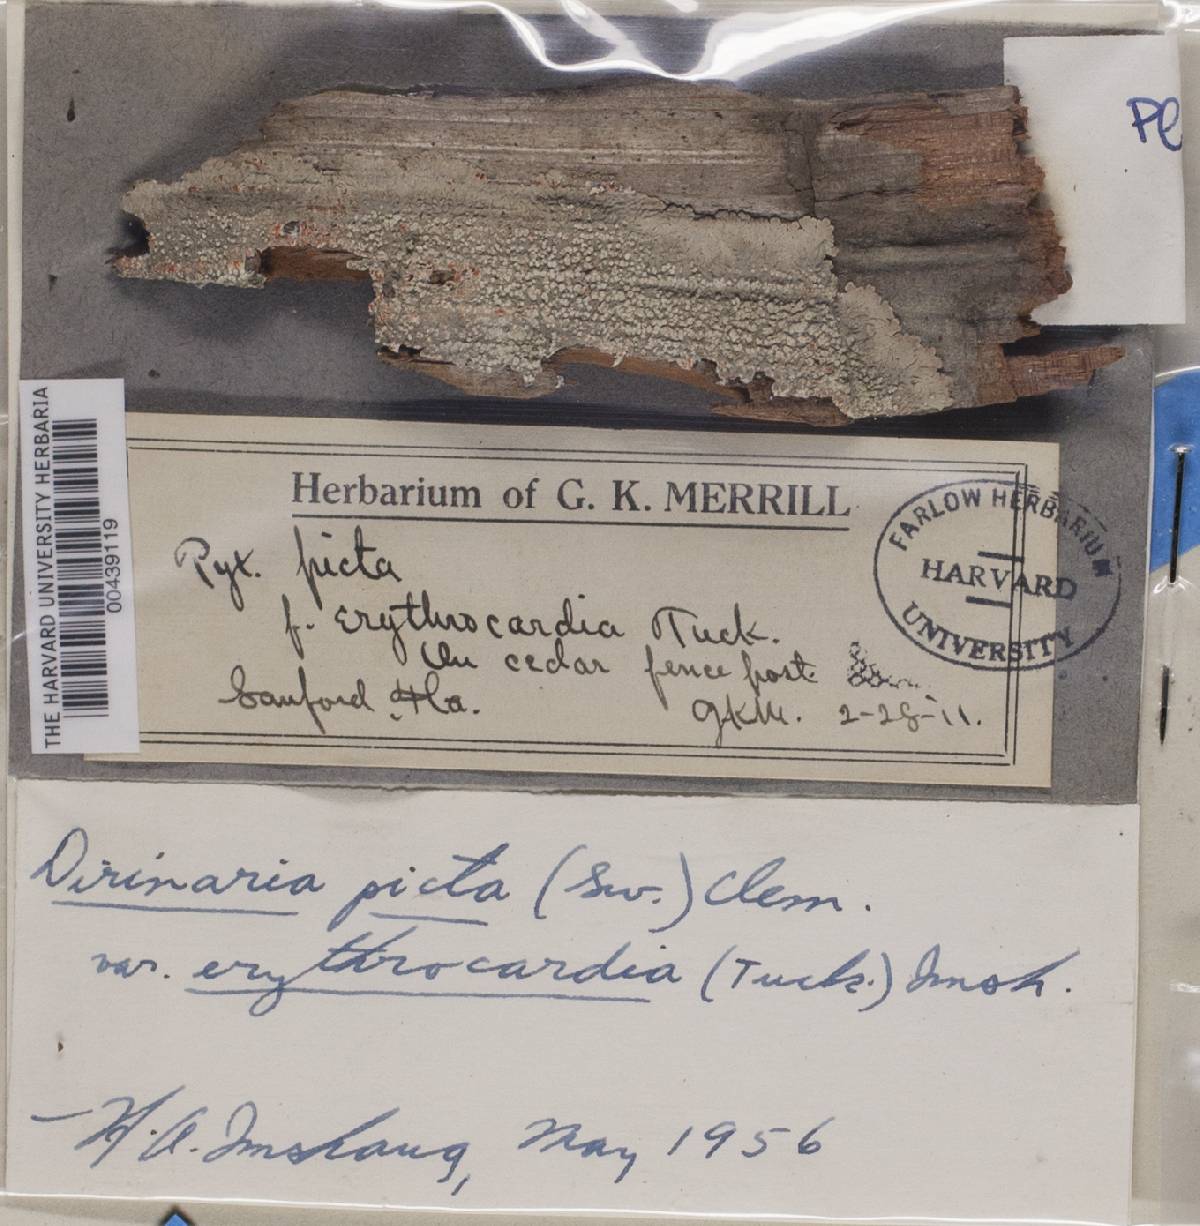 THE HARVARD UNIVERSITY HERBARIA
00439119
Herbarium of G. K. MERRILL
Pyx. picta
f. erythrocardia Tuck.
On cedar fence post
Sanford, Fla.
GKM. 2-28-11.
FARLOW HERBARIUM
HARVARD
UNIVERSITY
Dirinaria picta (Sw.) Clem.
var. erythrocardia (Tuck.) Imsh.
— H.A. Imshaug, May 1956